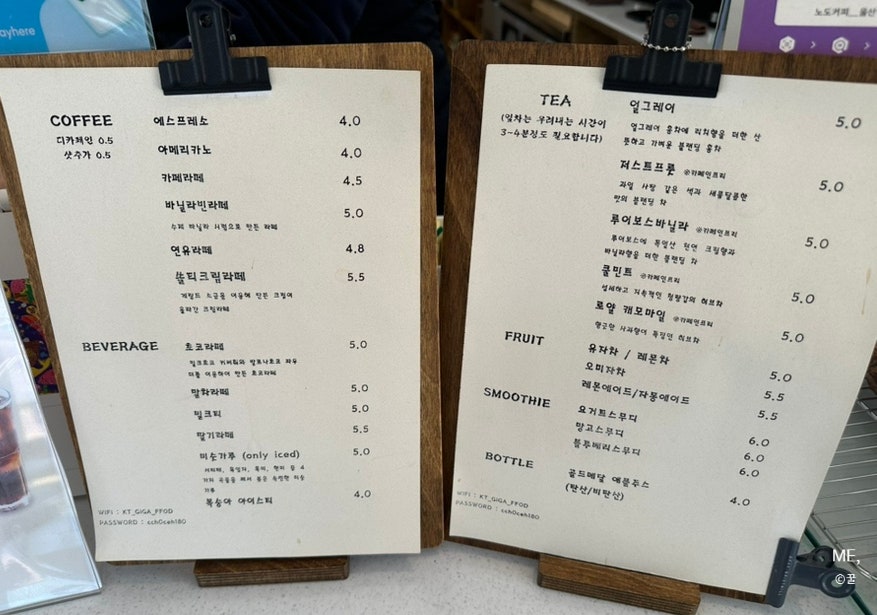 ayhere
노도커피__울산
COFFEE
디카페인 0.5
샷추가 0.5
에스프레소 4.0
아메리카노 4.0
카페라떼 4.5
바닐라빈라떼 5.0
수제 바닐라 시럽으로 만든 라떼
연유라떼 4.8
쏠티크림라떼 5.5
게랑드 소금을 이용해 만든 크림이
올라간 크림라떼
BEVERAGE
초코라떼 5.0
밀크초코 커버춰와 발로나초코 파우
더를 이용하여 만든 초코라떼
말차라떼 5.0
밀크티 5.0
딸기라떼 5.5
미숫가루 (only iced) 5.0
서리태, 흑임자, 흑미, 현미 등 4
가지 곡물을 쪄서 볶은 속편한 미숫
가루
복숭아 아이스티 4.0
WIFI : KT_GIGA_FFOD
PASSWORD : cch0ceh180
TEA
(잎차는 우려내는 시간이
3~4분정도 필요합니다)
얼그레이 5.0
얼그레이 홍차에 리치향을 더한 산
뜻하고 가벼운 블랜딩 홍차
저스트프룻 @카페인프리 5.0
과일 사탕 같은 색과 새콤달콤한
맛의 블랜딩 차
루이보스바닐라 @카페인프리 5.0
루이보스에 독일산 천연 크림향과
바닐라향을 더한 블랜딩 차
쿨민트 @카페인프리 5.0
섬세하고 지속적인 청량감의 허브차
로얄 캐모마일 @카페인프리 5.0
향긋한 사과향이 특징인 허브차
FRUIT
유자차 / 레몬차 5.0
오미자차 5.5
레몬에이드/자몽에이드 5.5
SMOOTHIE
요거트스무디 6.0
망고스무디 6.0
블루베리스무디 6.0
BOTTLE
골드메달 애플주스 4.0
(탄산/비탄산)
WIFI : KT_GIGA_FFOD
PASSWORD : cch0ceh180
ME,
©꿀